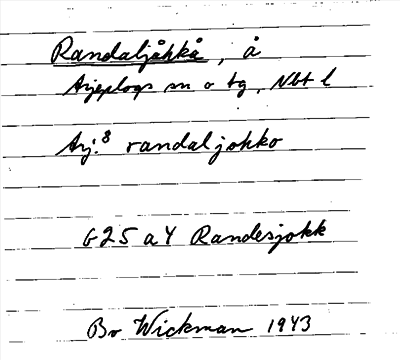 Randaljåhkå, å
Arjeplogs sn o tg, Nbt l
Arj.8 randaljokko
G25 a4 Randesjokk
Bo Wickman 1943